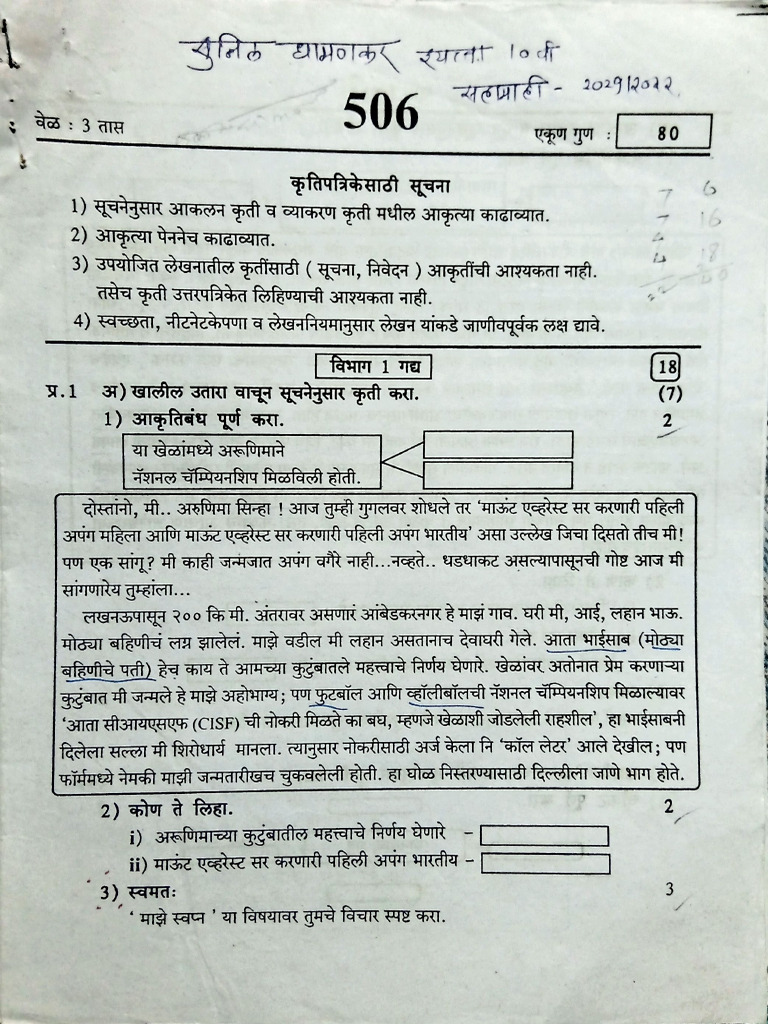 सुनिल धामणकर इयत्ता 10 वी
506
2021/2022
वेळ : 3 तास
एकूण गुण : 80
कृतिपत्रिकेसाठी सूचना
1) सूचनेनुसार आकलन कृती व व्याकरण कृती मधील आकृत्या काढाव्यात.
2) आकृत्या पेननेच काढाव्यात.
3) उपयोजित लेखनातील कृतींसाठी ( सूचना, निवेदन ) आकृतींची आश्यकता नाही.
तसेच कृती उत्तरपत्रिकेत लिहिण्याची आश्यकता नाही.
4) स्वच्छता, नीटनेटकेपणा व लेखननियमानुसार लेखन यांकडे जाणीवपूर्वक लक्ष द्यावे.
विभाग 1 गद्य 18
प्र.1 अ) खालील उतारा वाचून सूचनेनुसार कृती करा. (7)
1) आकृतिबंध पूर्ण करा. 2
या खेळांमध्ये अरूणिमाने
नॅशनल चॅम्पियनशिप मिळविली होती.
दोस्तांनो, मी.. अरुणिमा सिन्हा ! आज तुम्ही गुगलवर शोधले तर 'माऊंट एव्हरेस्ट सर करणारी पहिली
अपंग महिला आणि माऊंट एव्हरेस्ट सर करणारी पहिली अपंग भारतीय' असा उल्लेख जिचा दिसतो तीच मी!
पण एक सांगू? मी काही जन्मजात अपंग वगैरे नाही...नव्हते.. धडधाकट असल्यापासूनची गोष्ट आज मी
सांगणारेय तुम्हांला...
लखनऊपासून २०० कि मी. अंतरावर असणारं आंबेडकरनगर हे माझं गाव. घरी मी, आई, लहान भाऊ.
मोठ्या बहिणीचं लग्न झालेलं. माझे वडील मी लहान असतानाच देवाघरी गेले. आता भाईसाब (मोठ्या
बहिणीचे पती) हेच काय ते आमच्या कुटुंबातले महत्त्वाचे निर्णय घेणारे. खेळांवर अतोनात प्रेम करणाऱ्या
कुटुंबात मी जन्मले हे माझे अहोभाग्य; पण फुटबॉल आणि व्हॉलीबॉलची नॅशनल चॅम्पियनशिप मिळाल्यावर
'आता सीआयएसएफ (CISF) ची नोकरी मिळते का बघ, म्हणजे खेळाशी जोडलेली राहशील', हा भाईसाबनी
दिलेला सल्ला मी शिरोधार्य मानला. त्यानुसार नोकरीसाठी अर्ज केला नि 'कॉल लेटर' आले देखील; पण
फॉर्ममध्ये नेमकी माझी जन्मतारीखच चुकवलेली होती. हा घोळ निस्तरण्यासाठी दिल्लीला जाणे भाग होते.
2) कोण ते लिहा. 2
i) अरूणिमाच्या कुटुंबातील महत्त्वाचे निर्णय घेणारे -
ii) माऊंट एव्हरेस्ट सर करणारी पहिली अपंग भारतीय -
3) स्वमतः 3
' माझे स्वप्न ' या विषयावर तुमचे विचार स्पष्ट करा.